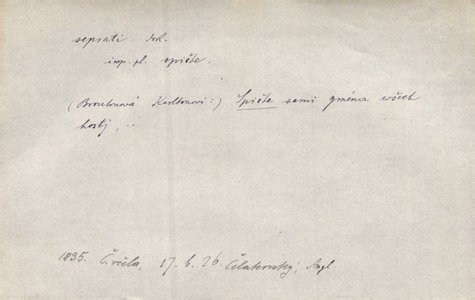 sepsati dok.
imp. pl. spište.
(Brontonová Karltonovi:) Spište sami gména wšech
hostj, ..
1835. Č. včela, 17. 6. 26. Čelakovský, Angl